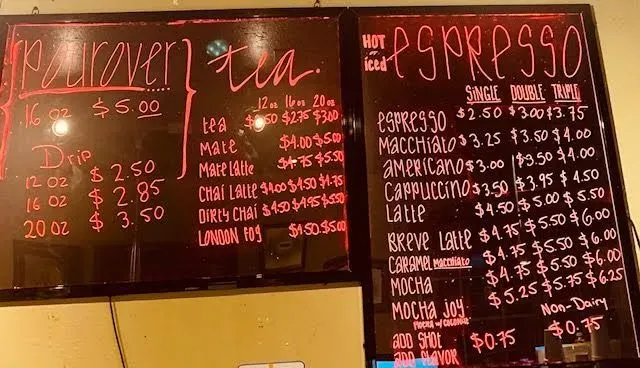 pourover
16 oz $5.00
Drip
12 oz $2.50
16 oz $2.85
20 oz $3.50
tea.
12 oz 16 oz 20 oz
tea $2.75 $3.00
Mate $4.00 $5.00
Mate Latte $4.75 $5.50
Chai Latte $4.00 $4.50 $4.75
Dirty Chai $4.50 $4.95 $5.50
London Fog $4.50 $5.00
HOT or iced ESPRESSO
SINGLE DOUBLE TRIPLE
ESPRESSO $2.50 $3.00 $3.75
Macchiato $3.25 $3.50 $4.00
americano $3.00 $3.50 $4.00
Cappuccino $3.50 $3.95 $4.50
Latte $4.50 $5.00 $5.50
BREVE Latte $4.75 $5.50 $6.00
CARAMEL macchiato $4.75 $5.50 $6.00
MOCHA $4.75 $5.50 $6.00
MOCHA JOY $5.25 $5.75 $6.25
MOCHA w/ COCONUT
Non-Dairy
ADD SHOT $0.75 $0.75
ADD FLAVOR